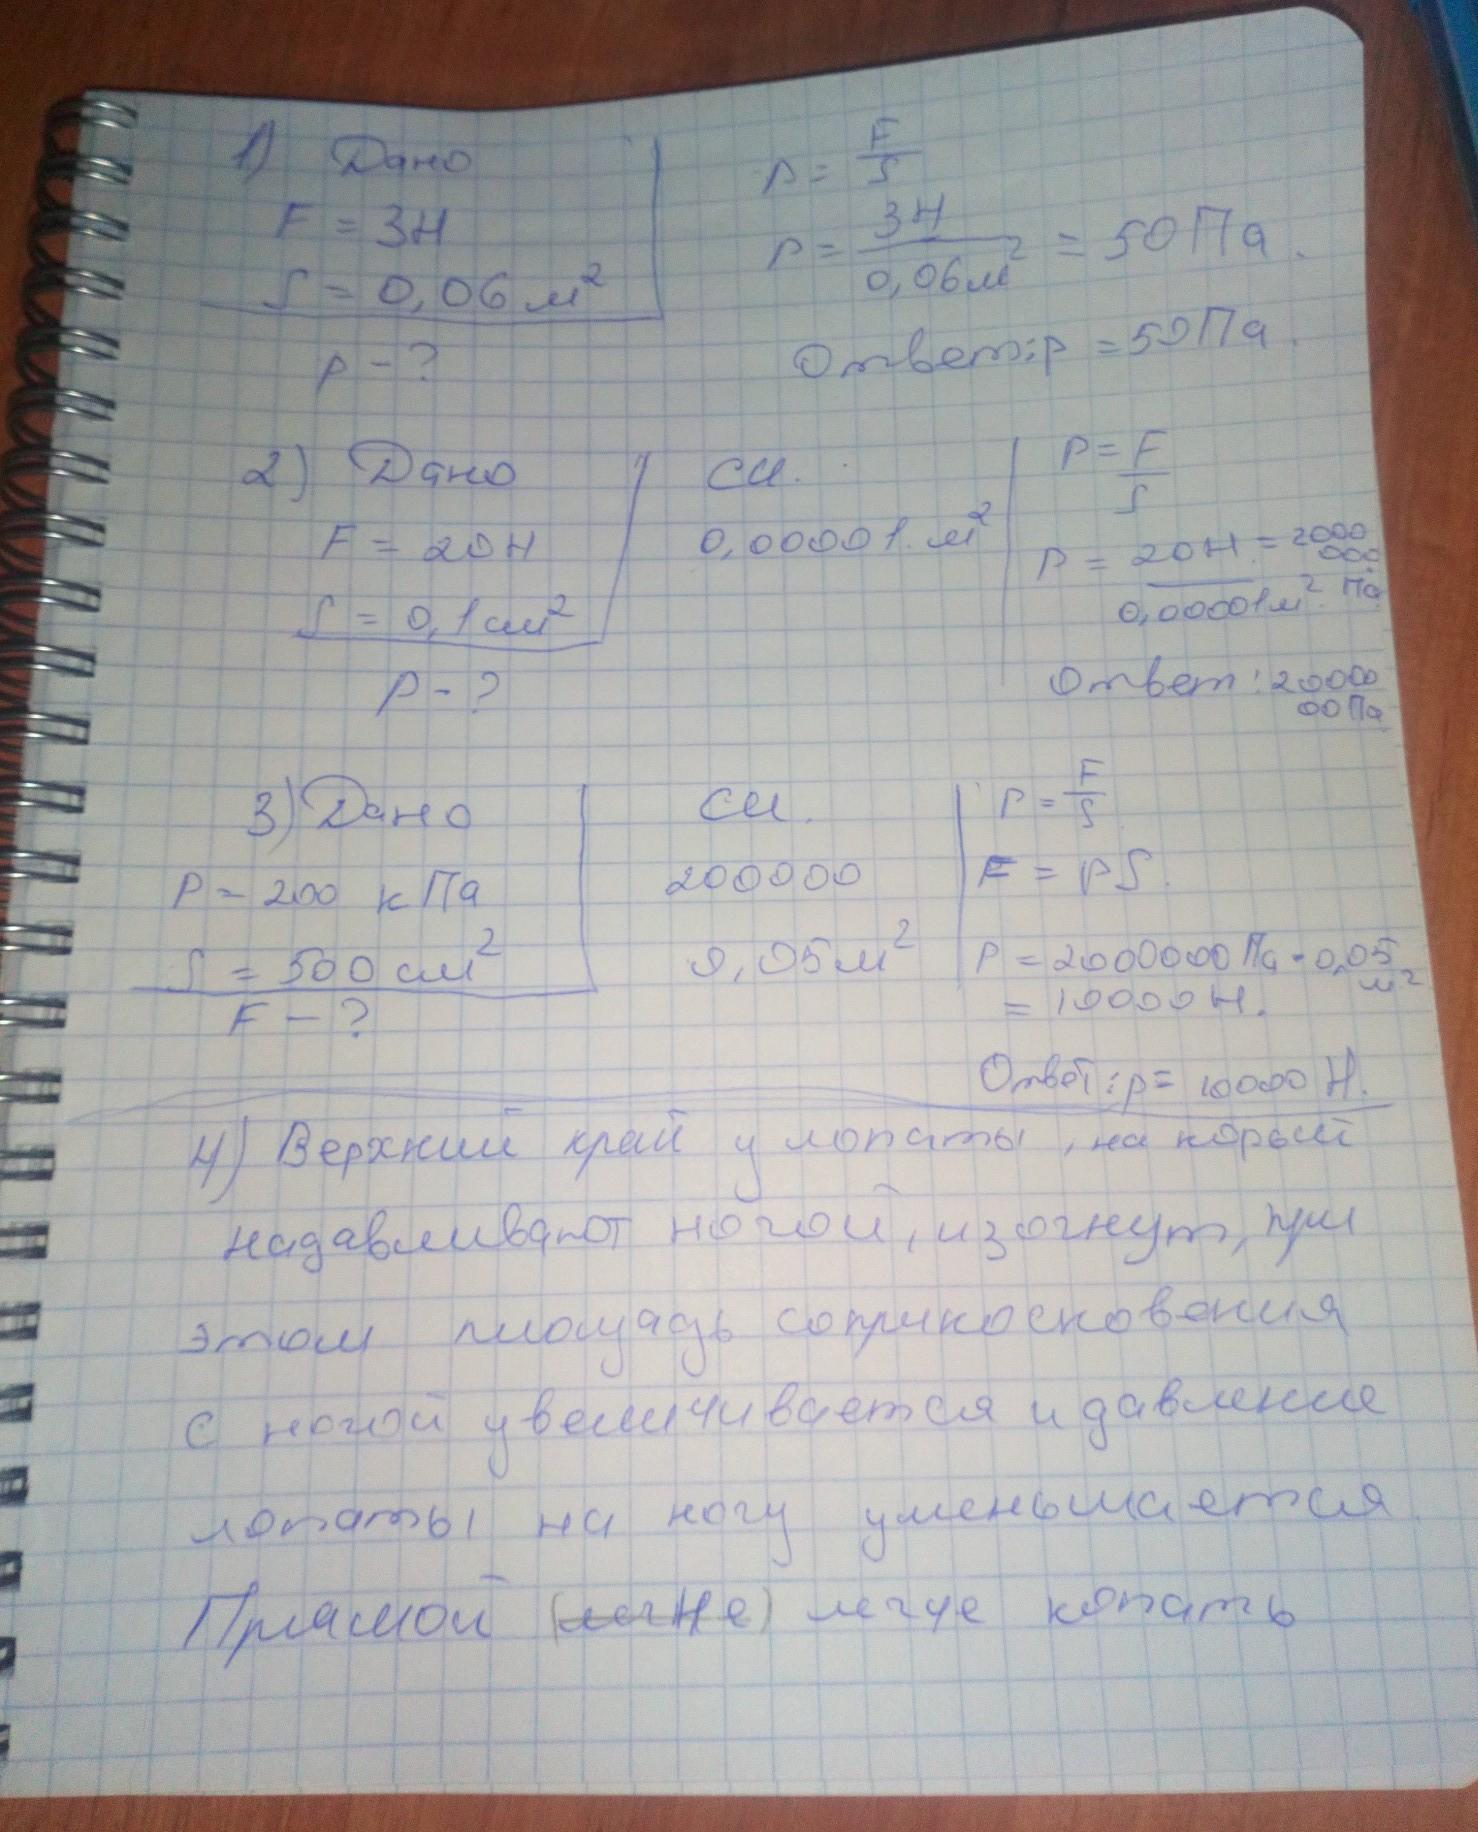 1) Дано
F = 3Н
S = 0,06 м²
p - ?
p = F/S
p = 3Н/0,06м² = 50 Па.
Ответ: p = 50 Па.
2) Дано
F = 20Н
S = 0,1 см²
P - ?
СИ.
0,00001 м²
P = F/S
P = 20Н/0,00001м² = 2000
000
Па
Ответ: 20000
00 Па
3) Дано
P = 200 кПа
S = 500 см²
F - ?
СИ.
200000
0,05 м²
P = F/S
F = PS.
P = 2000000 Па · 0,05
м²
= 10000 Н.
Ответ: p = 10000 Н.
4) Верхний край у лопаты, на корый
надавливают ногой, изогнут, при
этом площадь соприкоскновения
с ногой увеличивается и давление
лопаты на ногу уменьшается.
Прямой (легче) легче копать